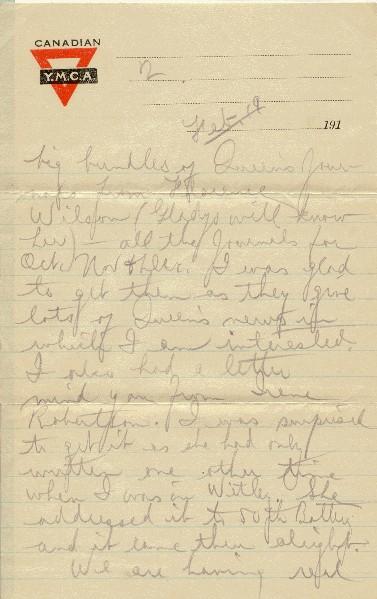 CANADIAN
Y.M.C.A.
2.
Feb. 19
191
big bundles of Queens Jour-
nals from Florence
Wilson (Gladys will know
her) - all the Journals for
Oct. Nov & Dec. I was glad
to get them as they give
lots of Queen's news in
which I am interested.
I also had a letter
mind you from Irene
Robertson. I was surprised
to get it as she had only
written one other time
when I was in Witley. She
addressed it to 50th Battery
and it came then alright.
We are having real